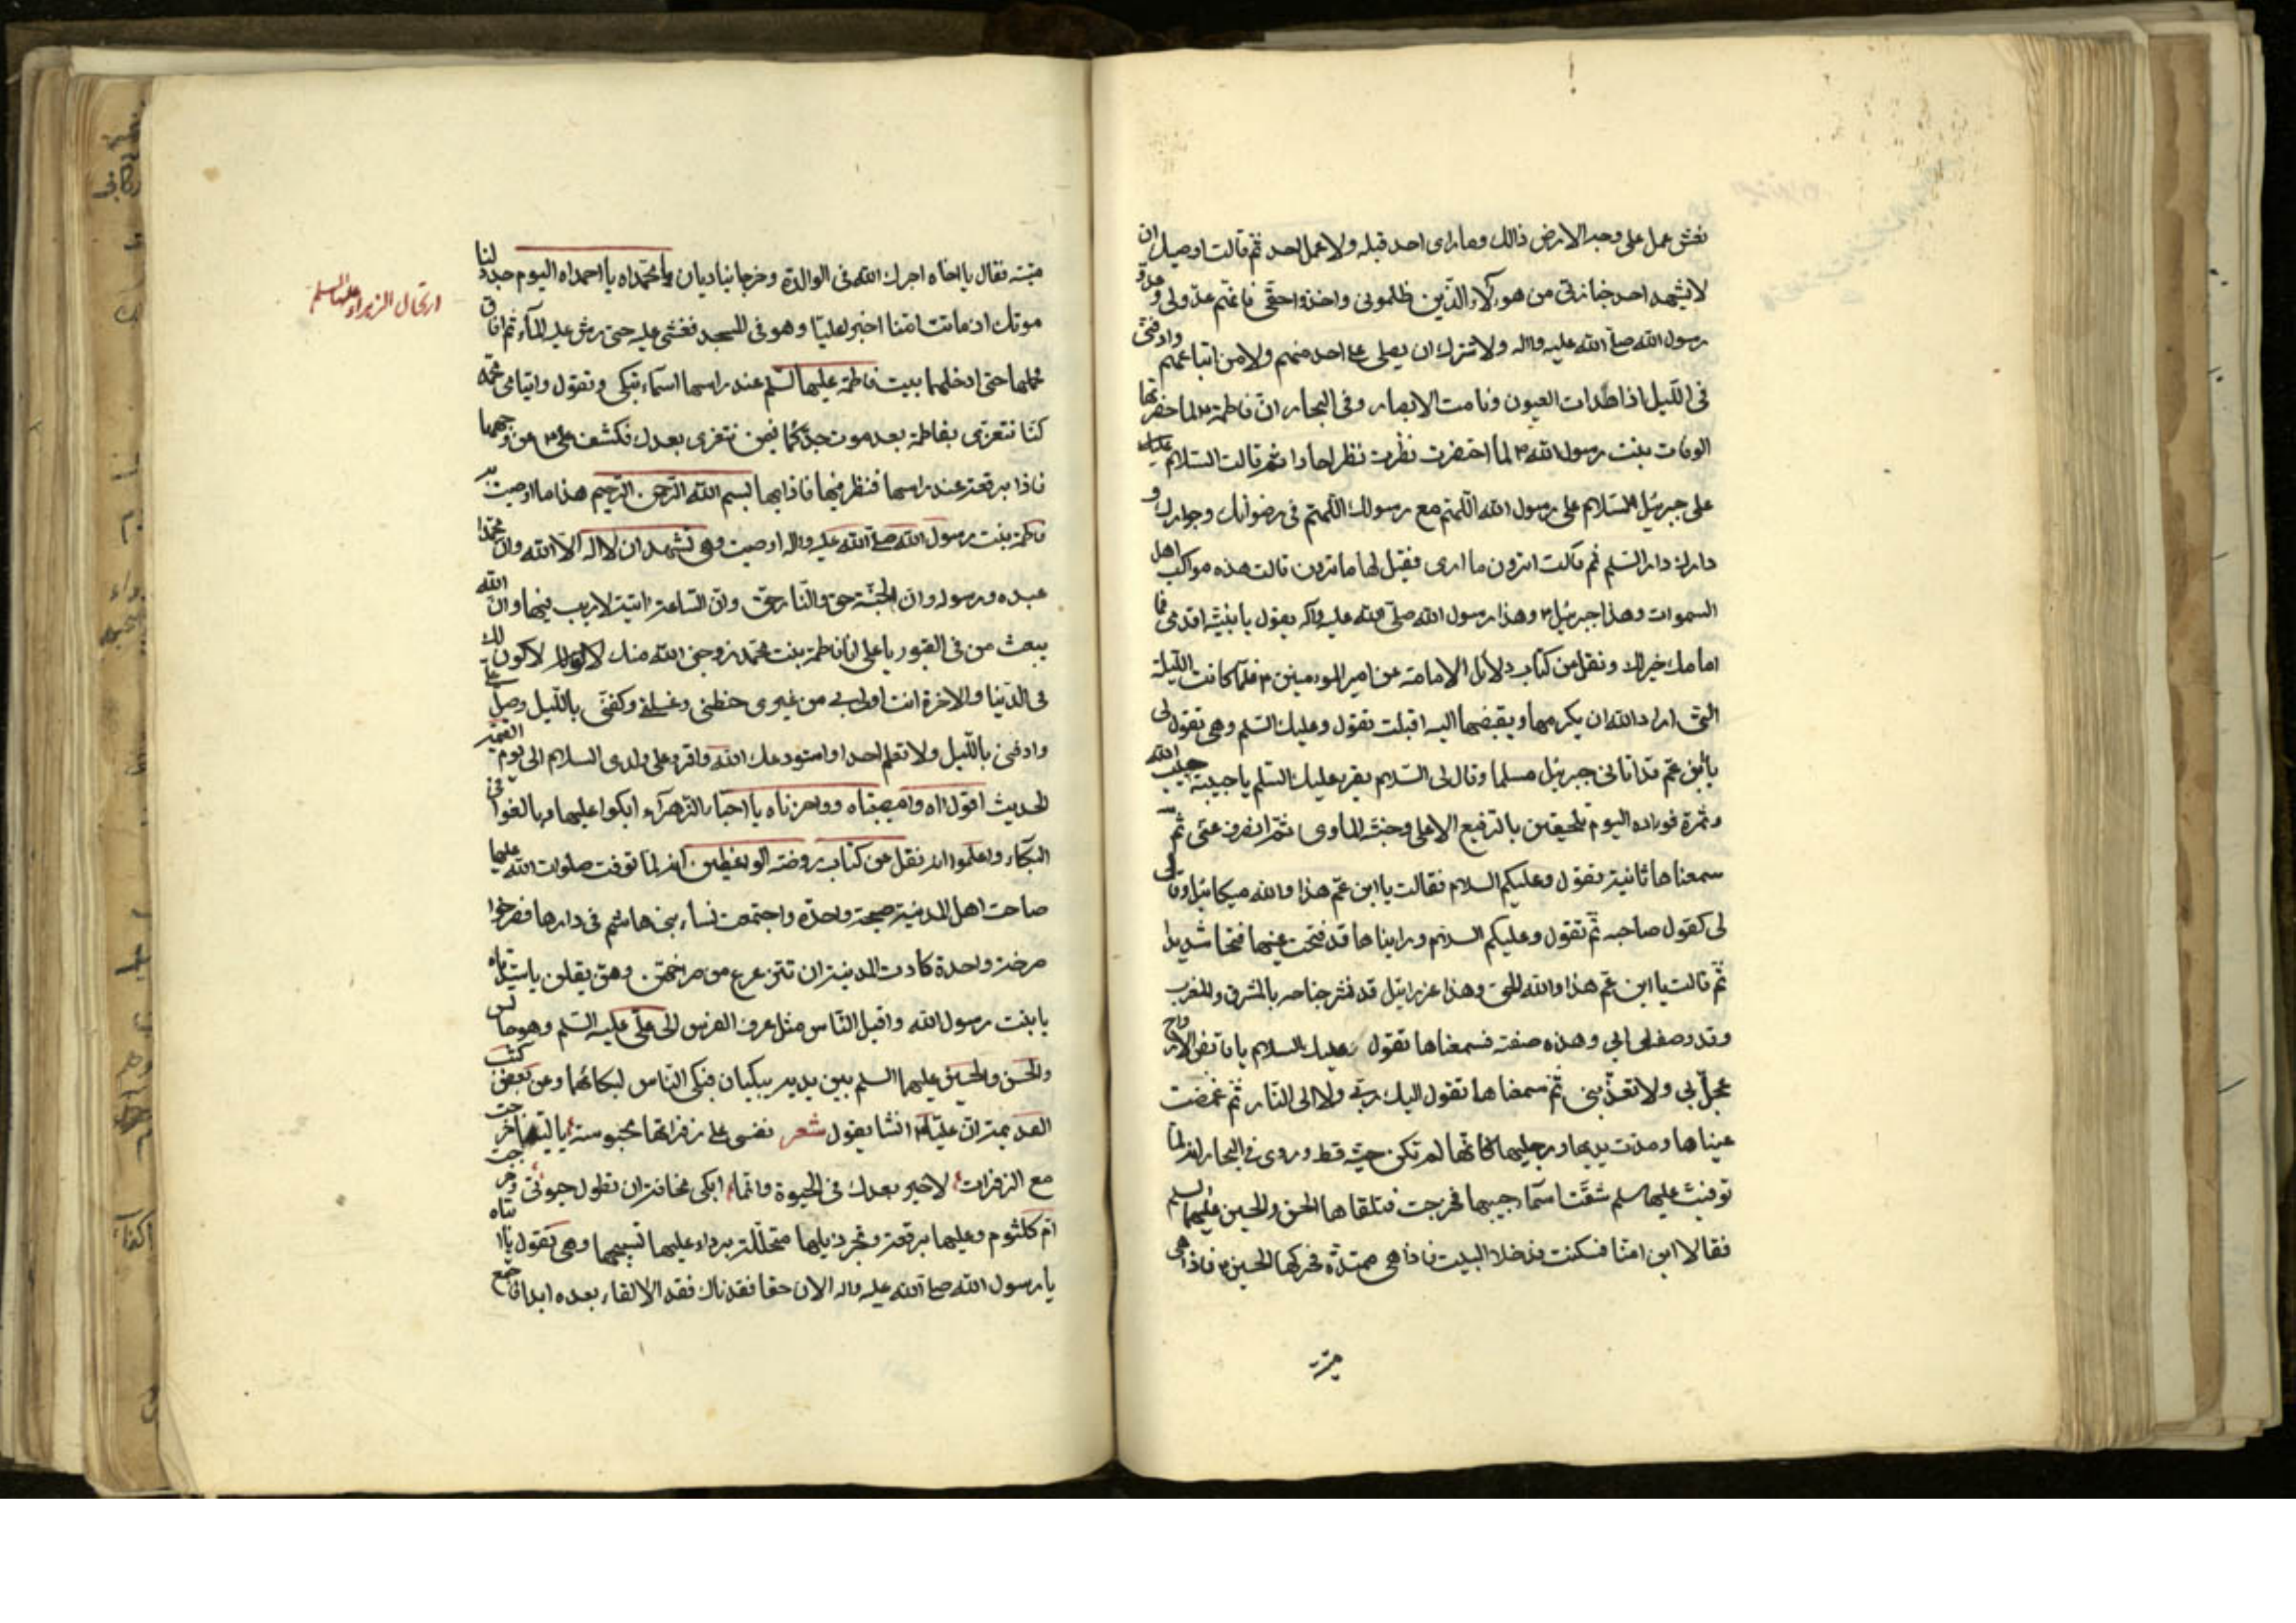 نعش عمل على وجه الارض ذالك وما راى احد قبله ولا عمل احد ثم قالت اوصيك ان
لا يشهد احد جنازتى من هؤلاء الذين ظلمونى واخذوا حقى فانهم عدولى وعدو
رسول الله صلى الله عليه واله ولا تترك ان يصلى على احد منهم ولا من اتباعهم وادفنى
فى الليل اذا هدات العيون ونامت الابصار وفى البحار ان فاطمة لما حضرتها
الوفات بنت رسول الله لما احتضرت نظرت نظرا حادا ثم قالت السلام
على جبرئيل السلام على رسول الله اللهم مع رسولك اللهم فى رضوانك وجوارك و
دارك دار السلم ثم قالت اترون ما ارى فقيل لها ما ترين قالت هذه مواكب اهل
السموات وهذا جبرئيل وهذا رسول الله صلى الله عليه واله يقول يا بنية اقدمى فما
امامك خير لك ونقل من كتاب دلائل الامامة عن امير المومنين فلما كانت الليلة
التى اراد الله ان يكرمها ويقبضها اليه اقبلت تقول وعليك السلم وهى تقول لى
يا بن عم قد اتانى جبرئيل مسلما وقال لى السلام يقرء عليك السلم يا حبيبة حبيب الله
وثمرة فوراده اليوم تلحقين بالرفيع الاعلى وجنة الماوى ثم انصرف عنى ثم
سمعناها ثانية تقول وعليكم السلام فقالت يا ابن عم هذا والله ميكائيل وقال
لى كقول صاحبه ثم تقول وعليكم السلام وراينا ها قد فتحت عينها فتحا شديدا
ثم قالت يا ابن عم هذا والله الحق وهذا عزرائيل قد نشر جناحه بالمشرق والمغرب
وقد وصفه لى ابى وهذه صفته فسمعناها تقول وعليك السلام يا قابض الارواح
عجل بى ولا تعذبنى ثم سمعناها تقول اليك ربى ولا الى النار ثم غمضت
عيناها ومدت يديها ورجليها كانها لم تكن حية قط وروى فى البحار انه لما
توفيت عليها السلم شقت اسماء جيبها فخرجت فتلقاها الحسن والحسين عليهما السلم
فقالا اين امنا فسكنت فدخلا البيت فاذا هى ممتدة فحركها الحسين فاذا هى
ميتة
ميتة فقال يا اخاه اجرك الله فى الوالدة وخرجا يناديان يا محمداه يا احمداه اليوم جدد لنا
موتك اذ ماتت امنا اخبرا عليا وهو فى المسجد فغشى عليه حتى رش عليه الماء ثم افاق
فحملهما حتى ادخلهما بيت فاطمة عليها السلم عند راسها اسماء تبكى وتقول وايتامى محمد
كنا نتعزى بفاطمة بعد موت جدكما فبمن نتعزى بعدك فكشف على عن وجهها
فاذا برقعة عند راسها فنظر فيها فاذا فيها بسم الله الرحمن الرحيم هذا ما اوصت به
فاطمة بنت رسول الله صلى الله عليه واله اوصت وهى تشهد ان لا اله الا الله وان محمدا
عبده ورسوله وان الجنة حق والنار حق وان الساعة اتية لا ريب فيها وان الله
يبعث من فى القبور يا على انا فاطمة بنت محمد زوجنى الله منك لاكون لك
فى الدنيا والاخرة انت اولى بى من غيرى حنطنى وغسلنى وكفنى بالليل وصل على
وادفنى بالليل ولا تعلم احدا واستودعك الله واقرء على ولدى السلام الى يوم القيمة
الحديث اقول اه وامصيبتاه وواحزناه يا احباء الزهراء ابكوا عليها وبالغوا فى
البكاء واعلموا انه نقل عن كتاب روضة الواعظين انه لما توفت صلوات الله عليها
صاحت اهل المدينة صيحة واحدة واجتمعت نساء بنى هاشم فى دارها فصرخوا
صرخة واحدة كادت المدينة ان تتزعزع من صراخهن وهن يقلن يا سيدتاه
يا بنت رسول الله واقبل الناس مثل عرف الفرس الى على عليه السلم وهو جالس
والحسن والحسين عليهما السلم بين يديه يبكيان فبكى الناس لبكائهما وعن بعض كتب
القديمة ان عليا انشا يقول شعر نفسى على زفراتها محبوسة يا ليتها خرجت
مع الزفرات لا خير بعدك فى الحيوة وانما ابكى مخافة ان تطول حيوتى وخرجت
ام كلثوم وعليها برقعة وتجر ذيلها متجللة برداء عليها تسبيجها وهى تقول يا ابتاه
يا رسول الله صلى الله عليه واله الان حقا فقدناك فقد الا لقاء بعده ابدا فاجمع
ارتحال الزهراء عليها السلم